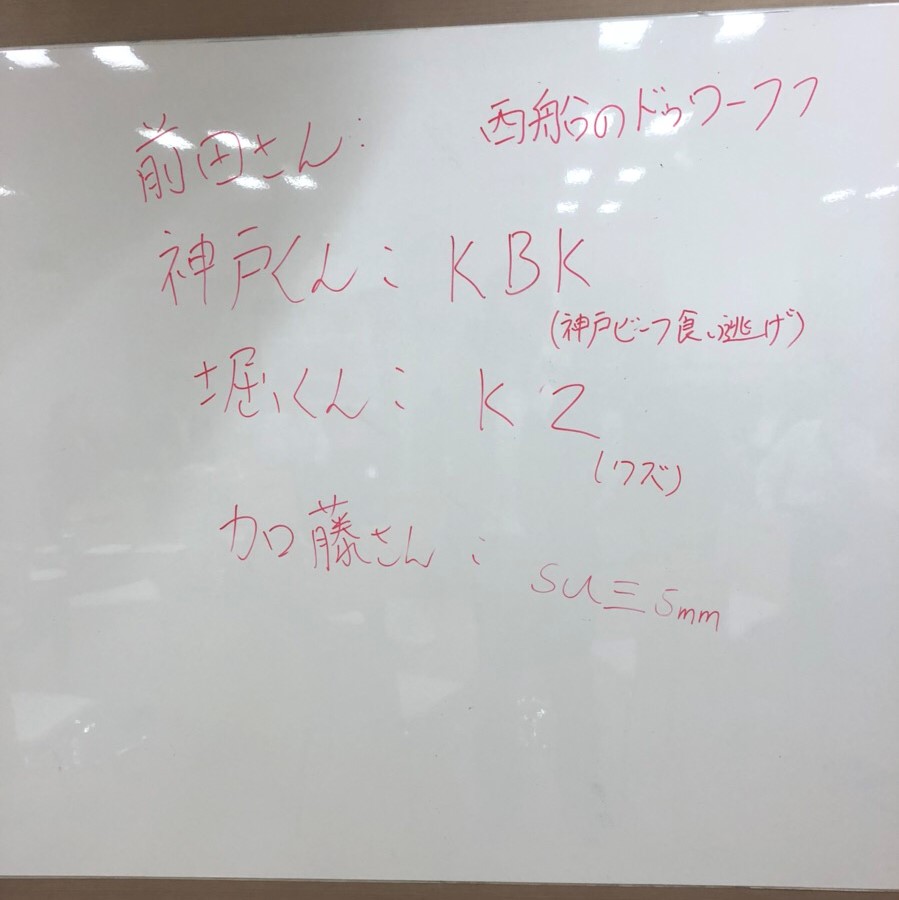 前田さん: 西船のドゥワーフフ
神戸くん: KBK
(神戸ビーフ食い逃げ)
堀くん: K2
(クズ)
加藤さん: SU三5mm